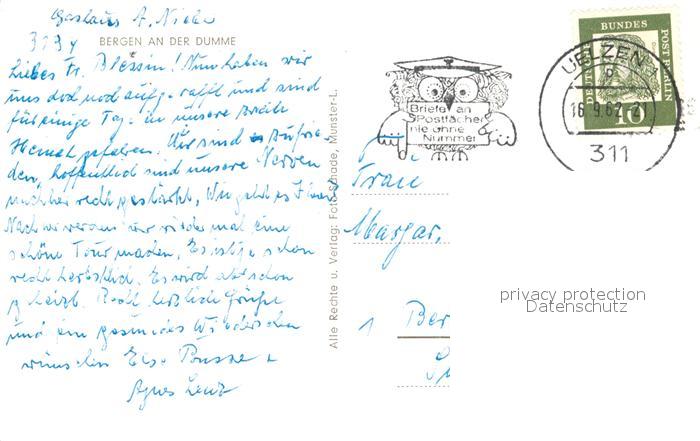 Gasthaus A. Nieber
3139
BERGEN AN DER DUMME
Liebes Fr. Blessin! Nun haben wir
uns doch noch aufgerafft und sind
für einige Tage in unsere
Heimat gefahren. Wir sind zufrie
den, hoffentlich sind unsere Nerven
nachher recht gestärkt. Wie geht es Ihnen
Nachher werden wir wieder mal eine
schöne Tour machen. Es ist ja schon
recht herbstlich. Es wird aber schon
geheizt. Recht herzliche Grüße
und ein gesundes Wiedersehen
wünschen
Agnes Lenz
Alle Rechte u. Verlag: Foto-Schade, Munster-L.
Briefe an
Postfächer
nie ohne
Nummer
UELZEN
16.9.62-21
311
DEUTSCHE BUNDESPOST BERLIN
10
Frau
Margar.
1 Ber
privacy protection
Datenschutz